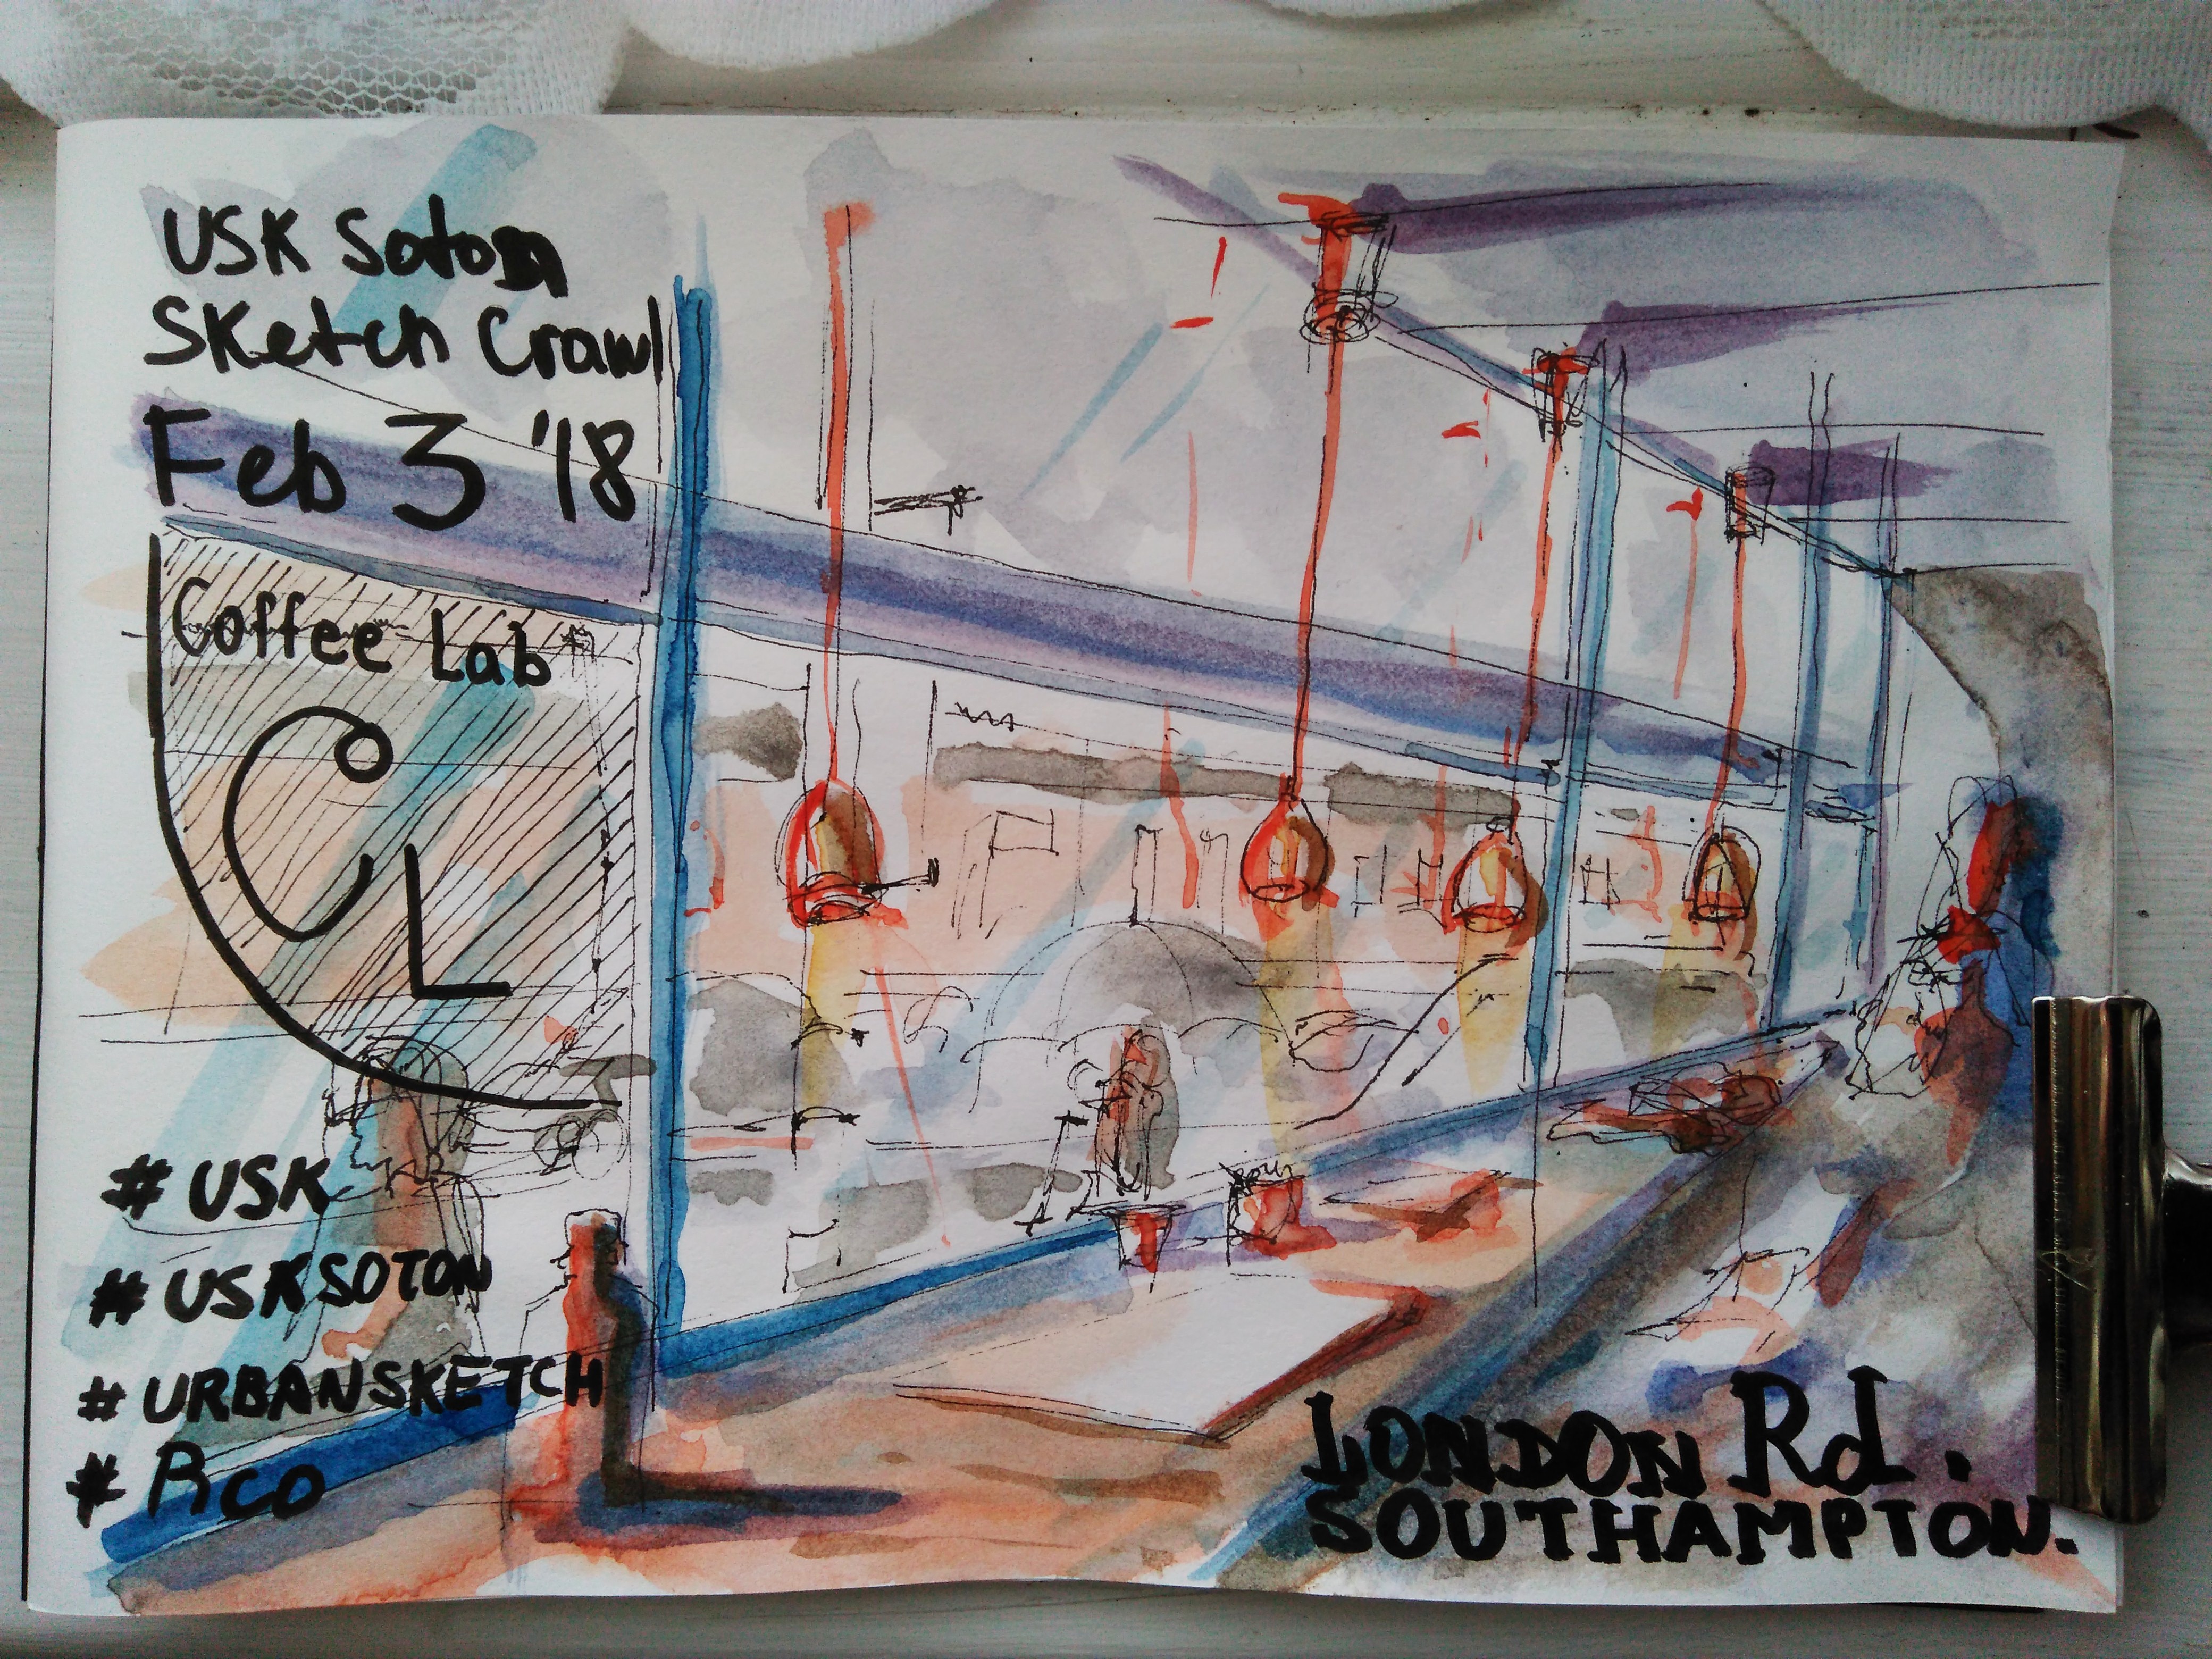 USK Soton
Sketch Crawl
Feb 3 '18
Coffee Lab
CL
# USK
# USKSOTON
# URBANSKETCH
# Rco
LONDON Rd.
SOUTHAMPTON.